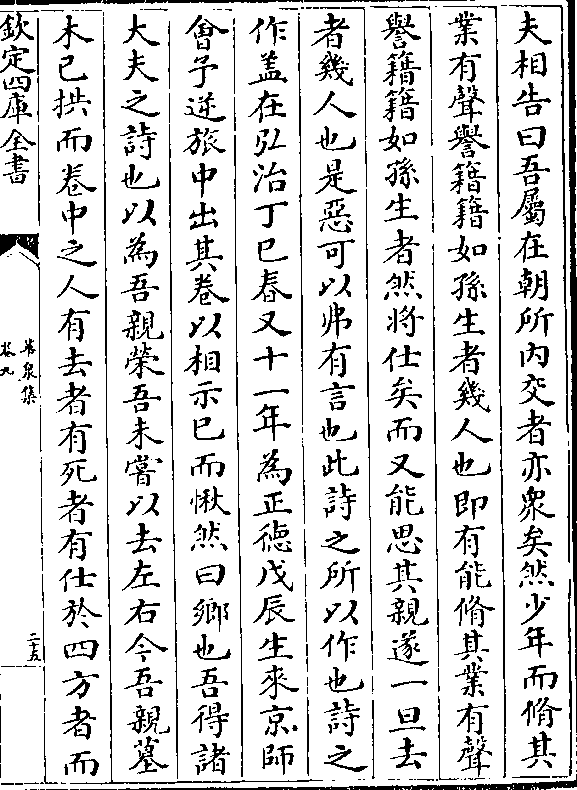 夫相告曰吾屬在朝所内交者亦衆矣然少年而脩其
業有聲譽籍籍如孫生者幾人也即有能脩其業有聲
譽籍籍如孫生者然將仕矣而又能思其親遂一旦去
者幾人也是惡可以弗有言也此詩之所以作也詩之
作盖在弘治丁巳春又十一年為正徳戊辰生來京師
會予逆旅中出其卷以相示已而愀然曰鄉也吾得諸
大夫之詩也以為吾親榮吾未嘗以去左右今吾親墓
木已拱而卷中之人有去者有死者有仕於四方者而
欽定四庫全書
卷九
二十五